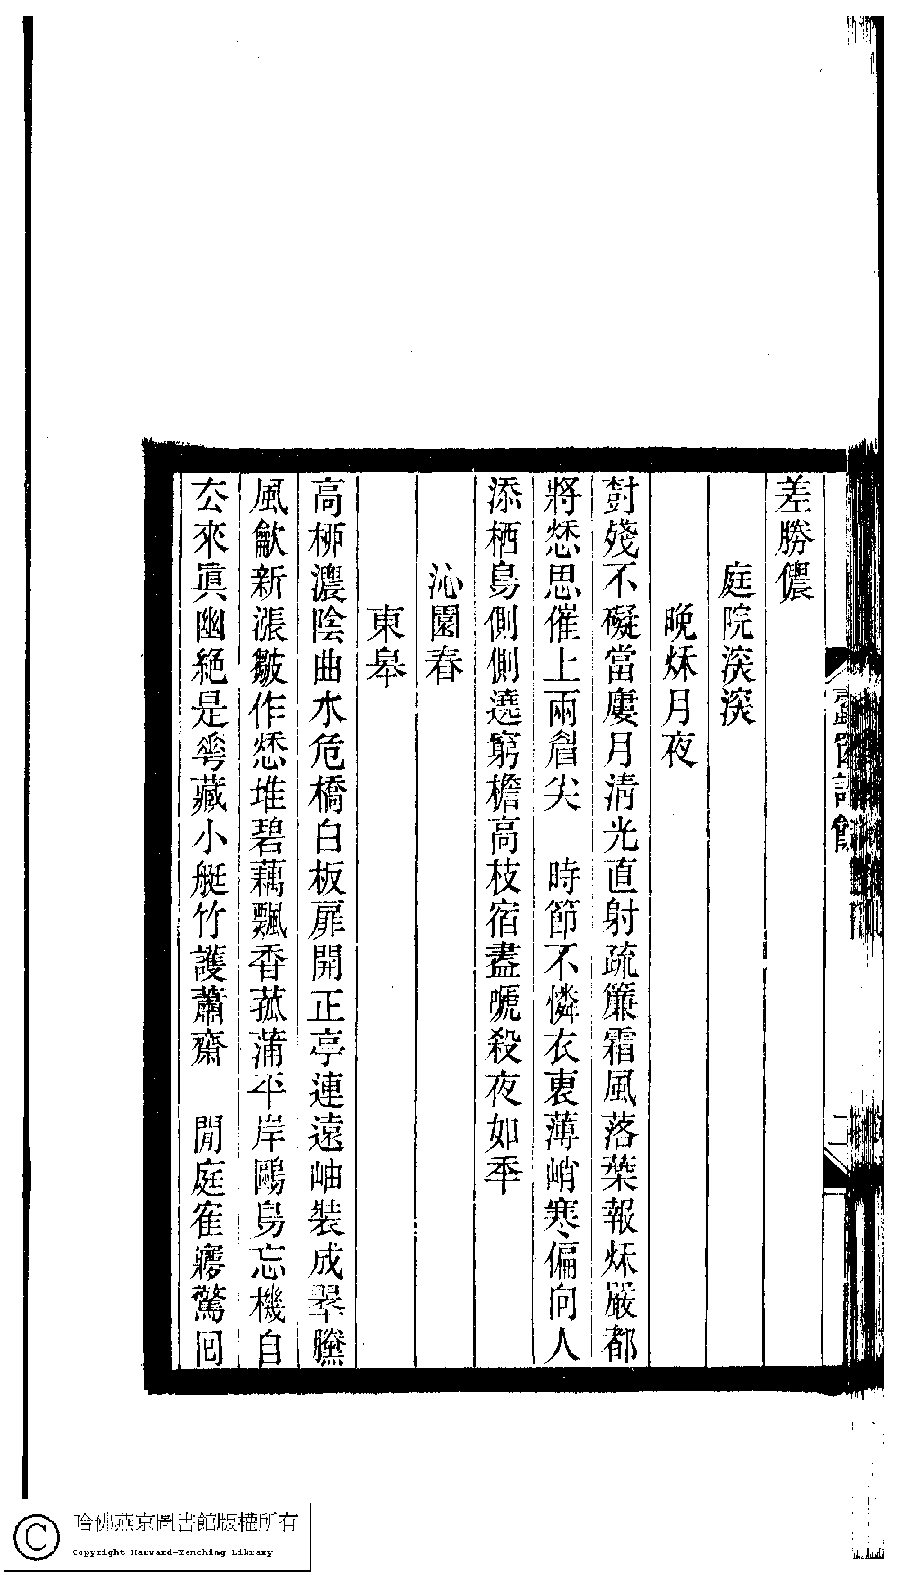 差勝儂
庭院深深
晚秌月夜
尌殘不礙當廔月清光直射疏簾霜風落葉報秌嚴都
將愁思催上兩眉尖　時節不憐衣裏薄峭寒偏向人
添栖鳥側側遶窮檐高枝宿盡嗁殺夜如秊
沁園春
東皋
高桺濃陰曲水危橋白板扉開正亭連遠岫裝成翠幰
風歈新漲皺作愁堆碧藕飄香菰蒲平岸鷗鳥忘機自
厺來眞幽絕是蕐藏小艇竹護蕭齋　閒庭隺㝱驚回
窗詩餘
二
哈佛燕京圖書館版權所有
Copyright Harvard-Yenching Library